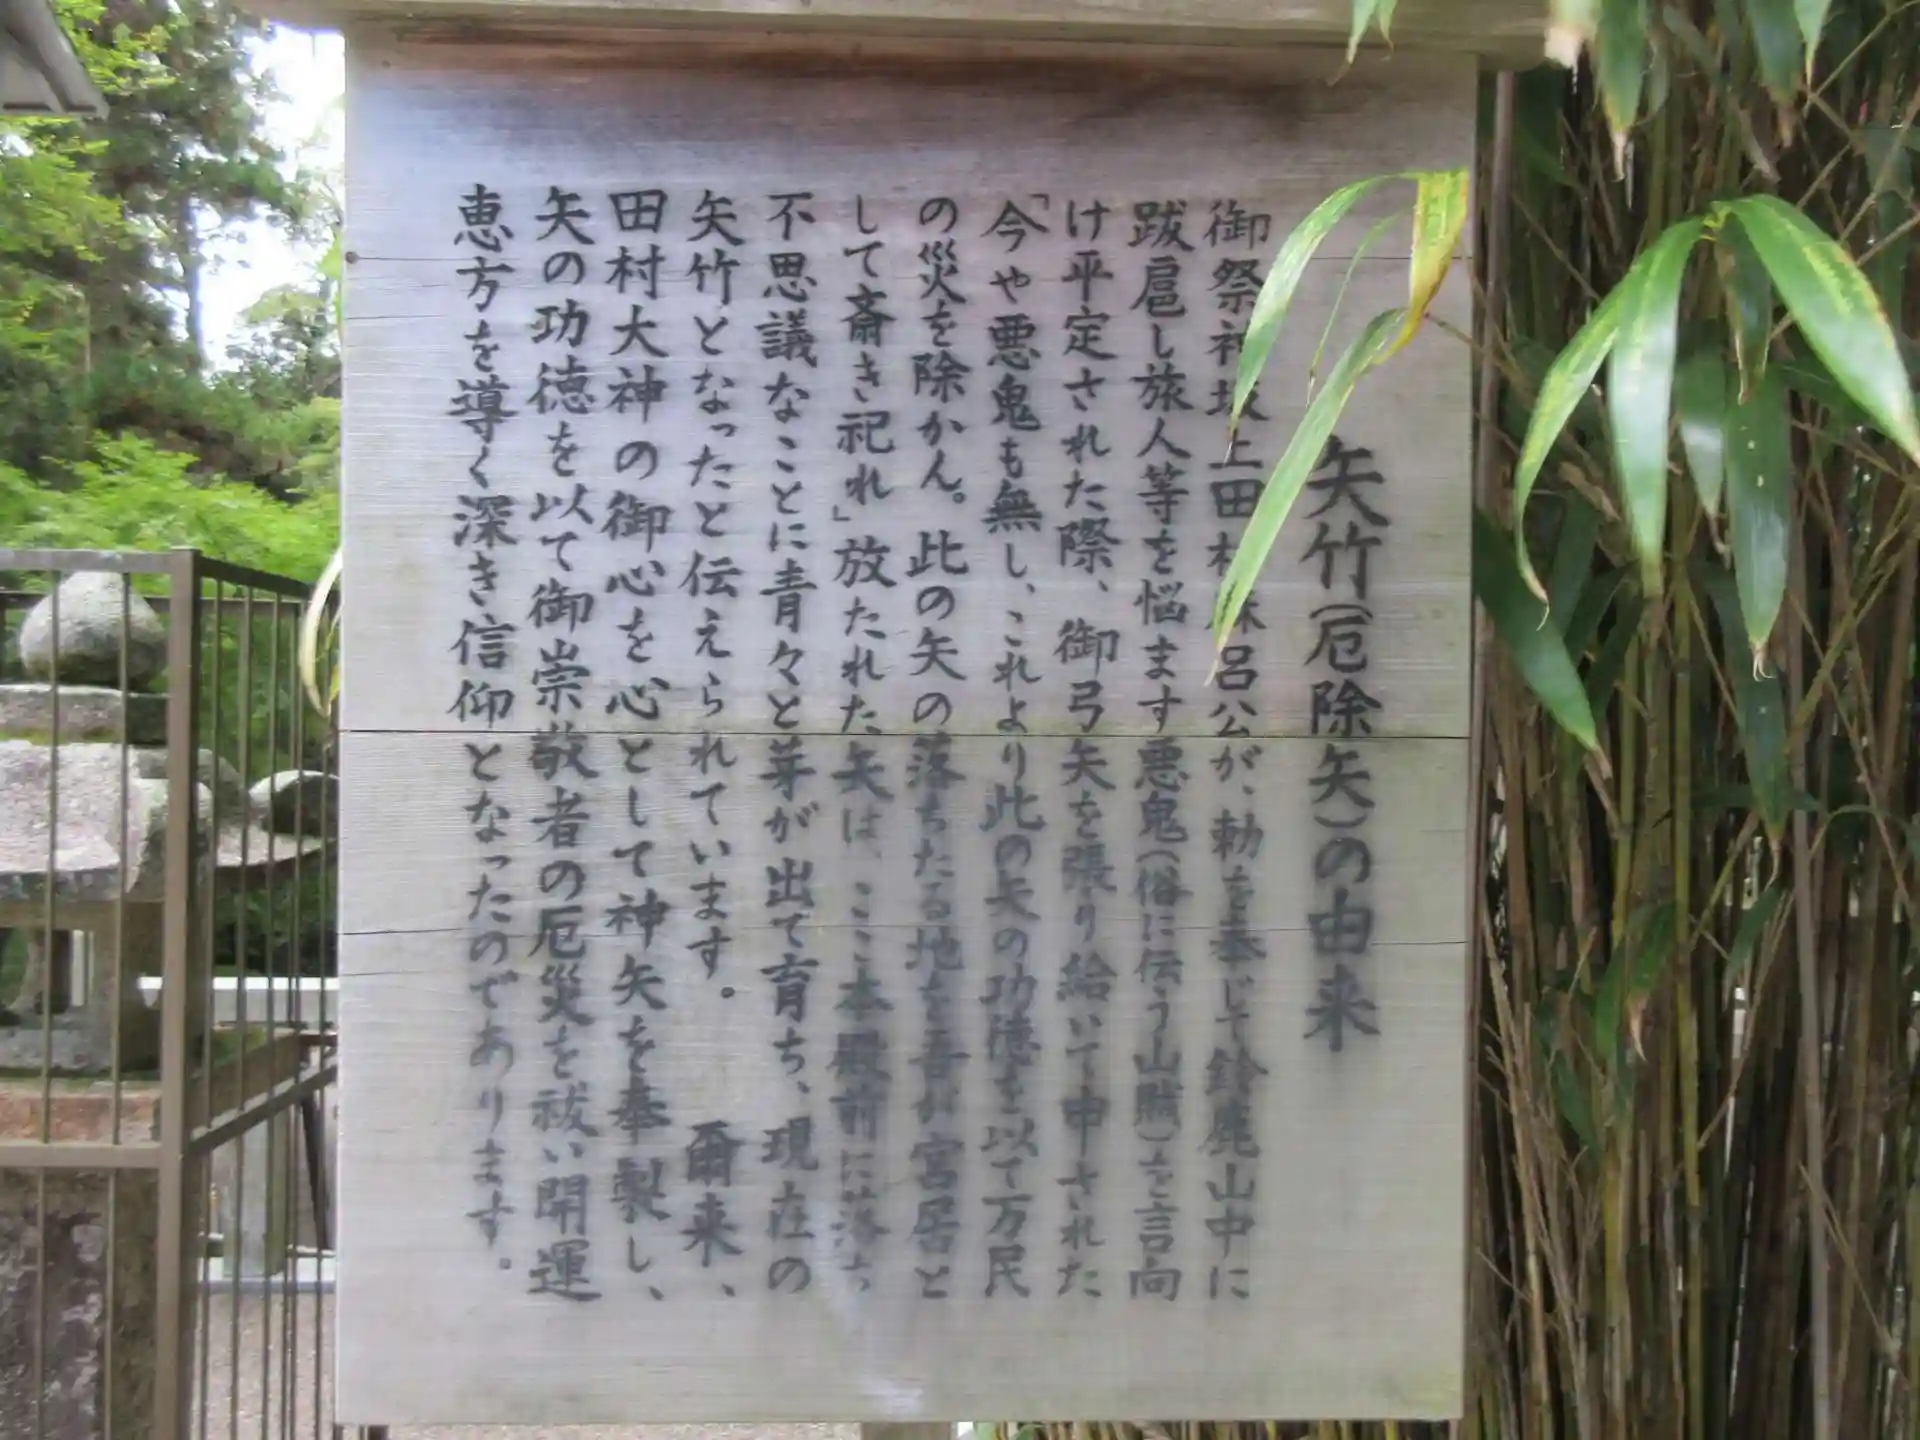 矢竹(厄除矢)の由来
御祭神坂上田村麻呂公が、勅を奉じて鈴鹿山中に
跋扈し旅人等を悩ます悪鬼(俗に伝う山賊)を言向
け平定された際、御弓矢を張り給いて申された
「今や悪鬼も無し、これより此の矢の功徳を以て万民
の災を除かん。此の矢の落ちたる地を吾が宮居と
して斎き祀れ」放たれた矢は、ここ本殿前に落ち
不思議なことに青々と芽が出て育ち、現在の
矢竹となったと伝えられています。 爾来、
田村大神の御心を心として神矢を奉製し、
矢の功徳を以て御崇敬者の厄災を祓い開運
恵方を導く深き信仰となったのであります。